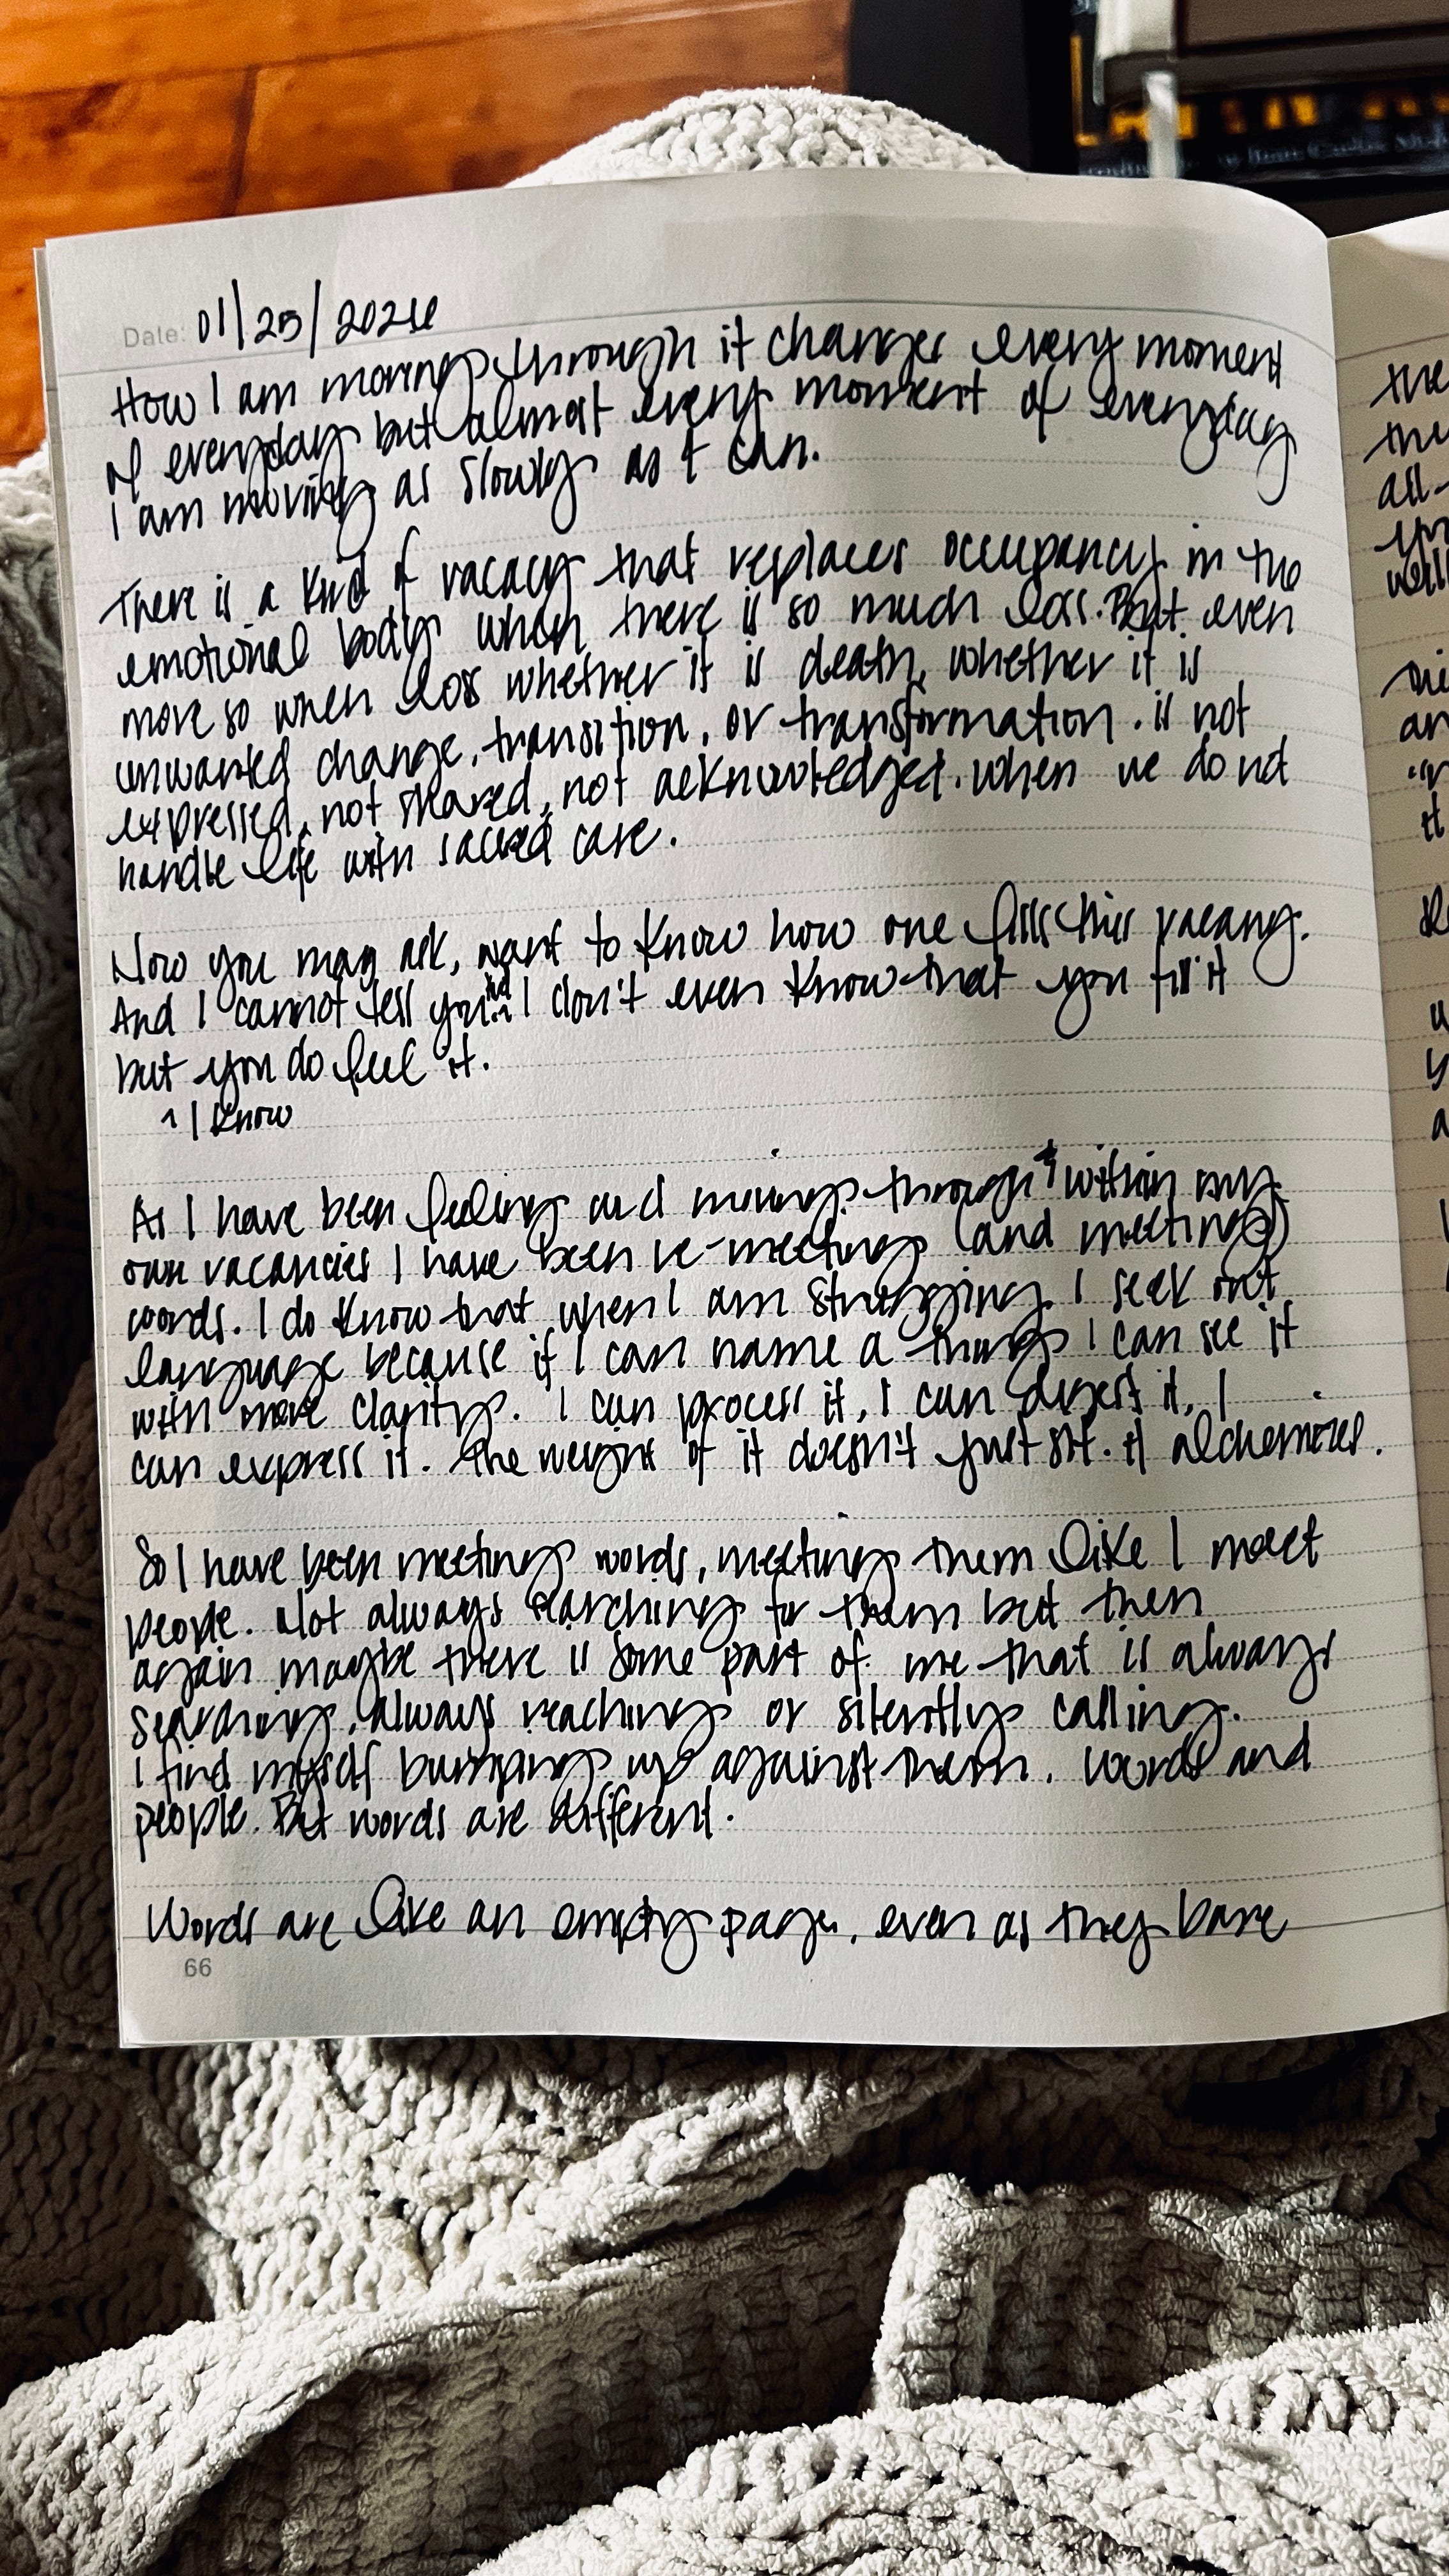 Date: 01/25/2026
How I am moving through it changes every moment
of everyday but almost every moment of everyday
I am moving as slowly as I can.
There is a kind of vacacy that replaces occupancy in the
emotional body when there is so much loss. But even
more so when loss whether it is death, whether it is
unwanted change, transition, or transformation. is not
expressed, not shared, not acknowledged. when we do not
handle life with sacred care.
Now you may ask, want to know how one fills this vacancy.
And I cannot tell you I don't even know that you fill it
but you do feel it.
^ I know
As I have been feeling and moving through + within my
own vacancies I have been re-meeting (and meeting)
words. I do know that when I am struggling, I seek out
language because if I can name a thing I can see it
with more clarity. I can process it, I can digest it, I
can express it. The weight of it doesn't just sit. it alchemizes.
So I have been meeting words, meeting them like I meet
people. Not always searching for them but then
again maybe there is some part of me that is always
searching, always reaching or silently calling.
I find myself bumping up against them. words and
people. But words are different.
Words are like an empty page, even as they bare
66